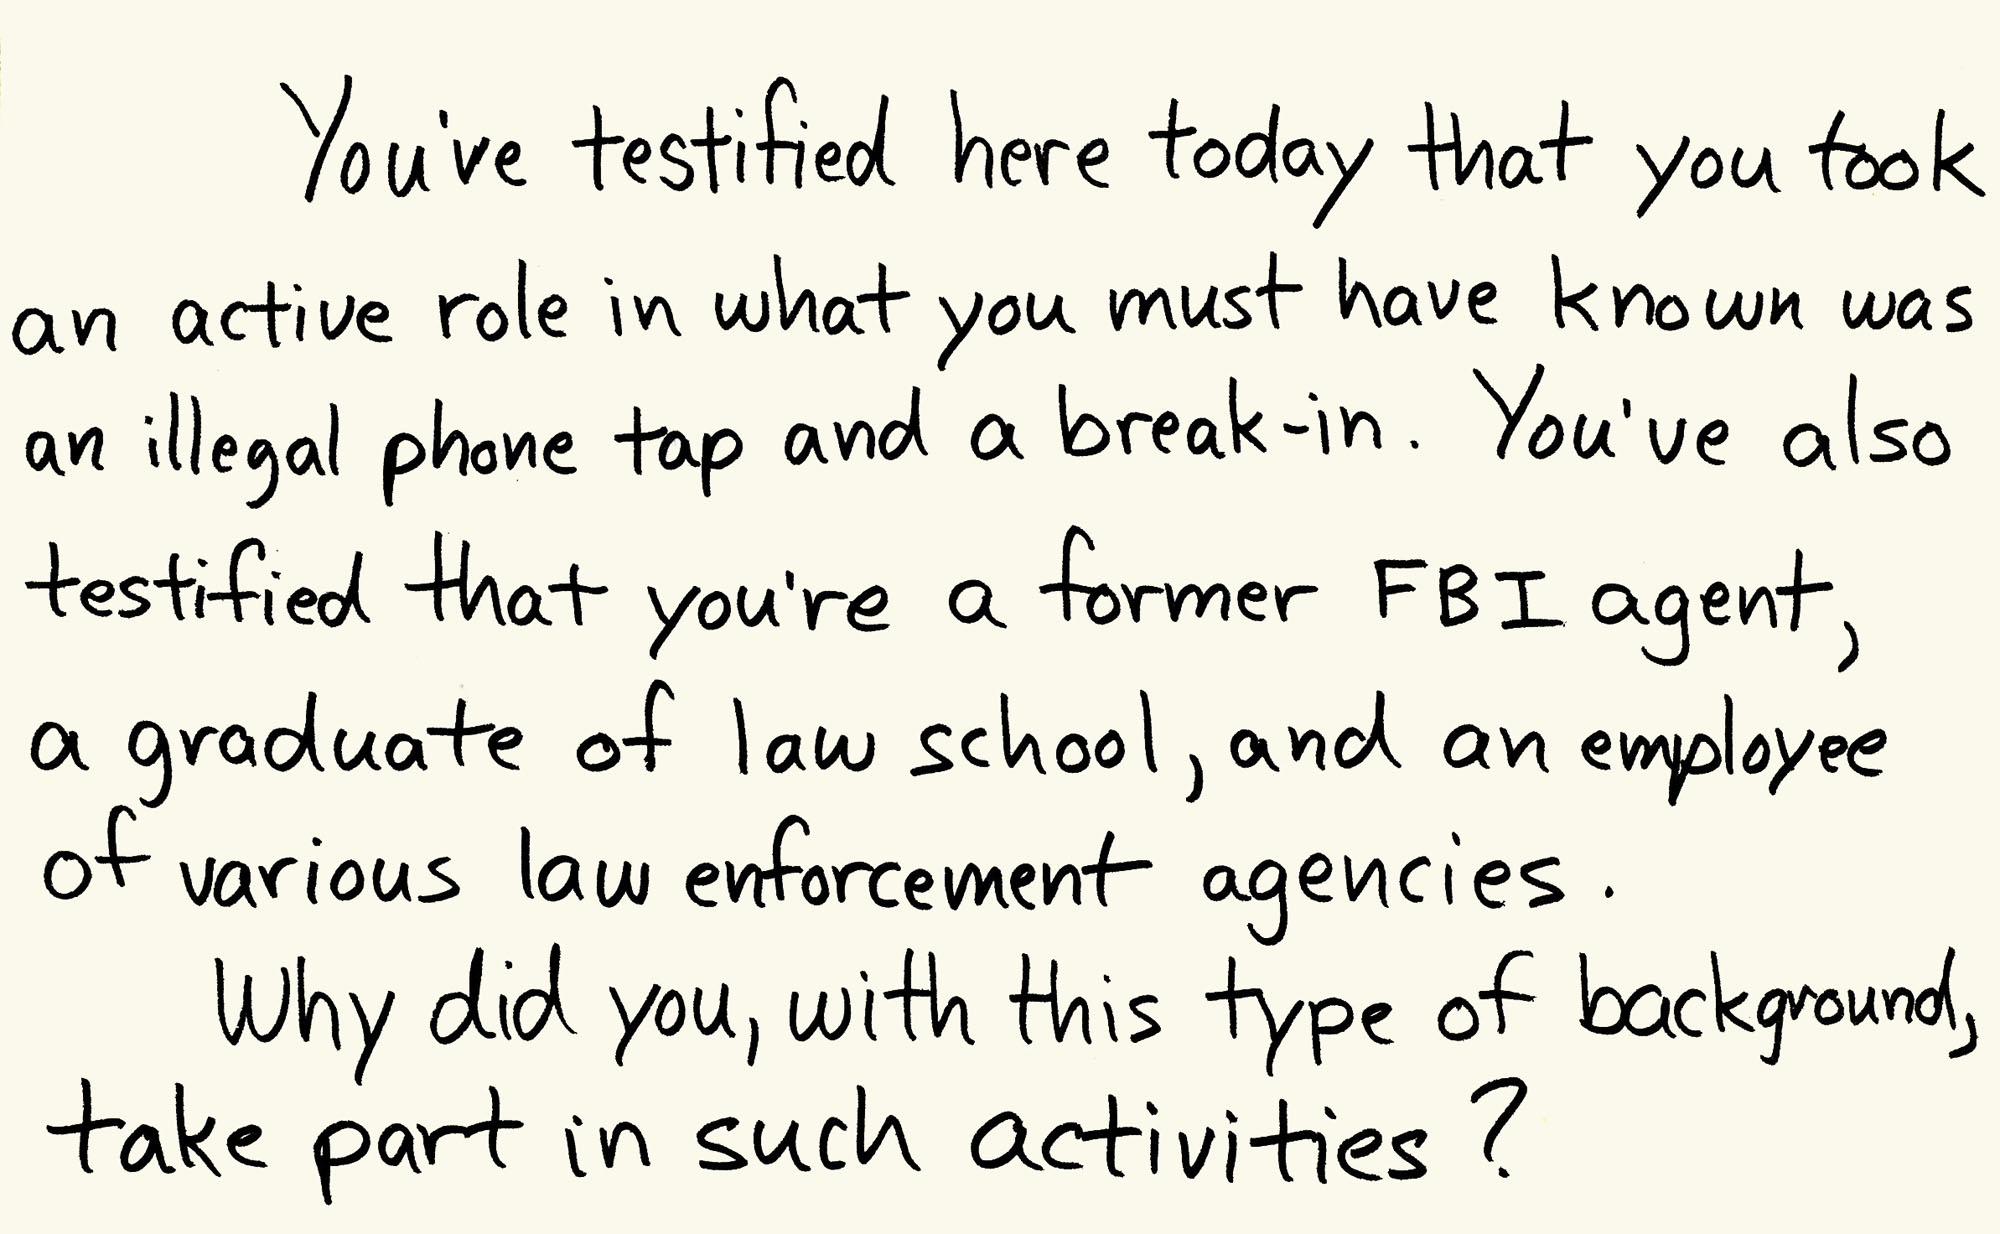 You've testified here today that you took
an active role in what you must have known was
an illegal phone tap and a break-in. You've also
testified that you're a former FBI agent,
a graduate of law school, and an employee
of various law enforcement agencies.
Why did you, with this type of background,
take part in such activities?